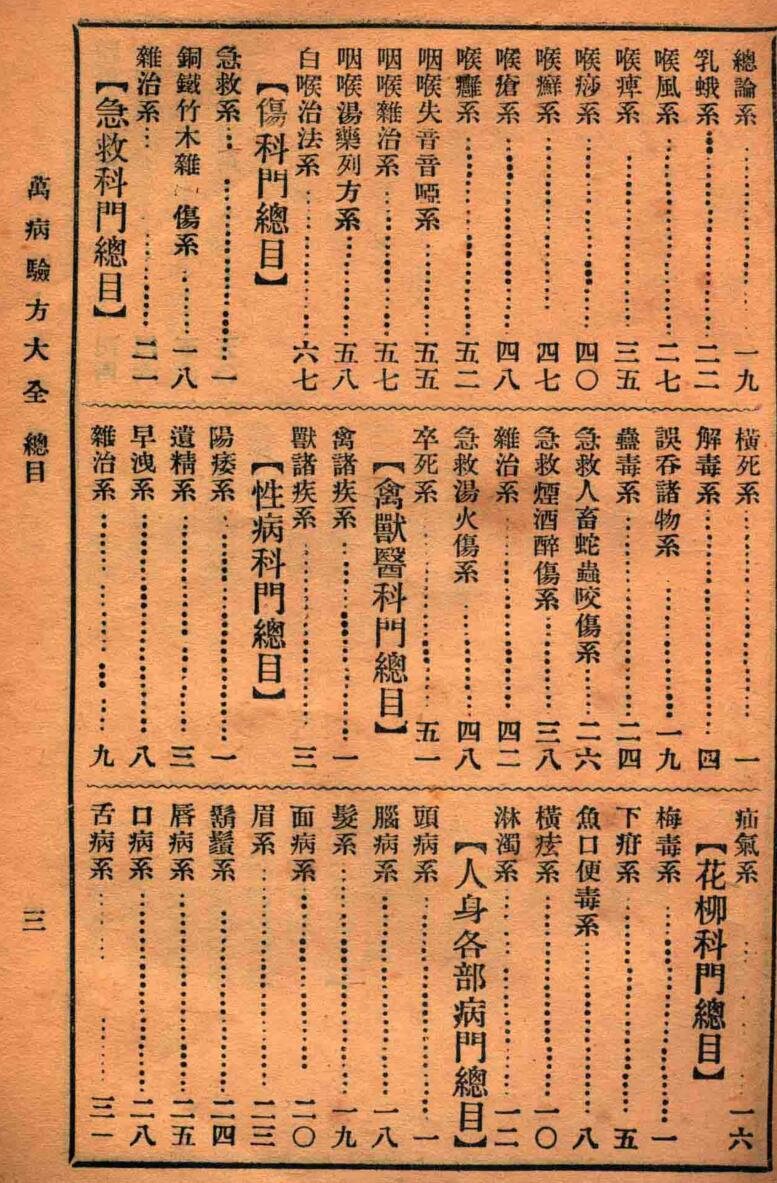 總論系……一九
乳蛾系……二二
喉風系……二七
喉痺系……三五
喉痧系……四〇
喉癬系……四七
喉瘡系……四八
喉癰系……五二
咽喉失音音啞系……五五
咽喉雜治系……五七
咽喉湯藥列方系……五八
白喉治法系……六七
【傷科門總目】
急救系……一
銅鐵竹木雜傷系……一八
雜治系……二一
【急救科門總目】
橫死系……一
解毒系……四
誤吞諸物系……一九
蠱毒系……二四
急救人畜蛇蟲咬傷系……二六
急救煙酒醉傷系……三八
雜治系……四二
急救湯火傷系……四八
卒死系……五一
【禽獸醫科門總目】
禽諸疾系……一
獸諸疾系……三
【性病科門總目】
陽痿系……一
遺精系……三
早洩系……八
雜治系……九
疝氣系……一六
【花柳科門總目】
梅毒系……一
下疳系……五
魚口便毒系……八
橫痃系……一〇
淋濁系……一二
【人身各部病門總目】
頭病系……一
腦病系……一八
髮系……一九
面病系……二〇
眉系……二三
鬍鬚系……二四
唇病系……二五
口病系……二八
舌病系……三一
萬病驗方大全 總目
三